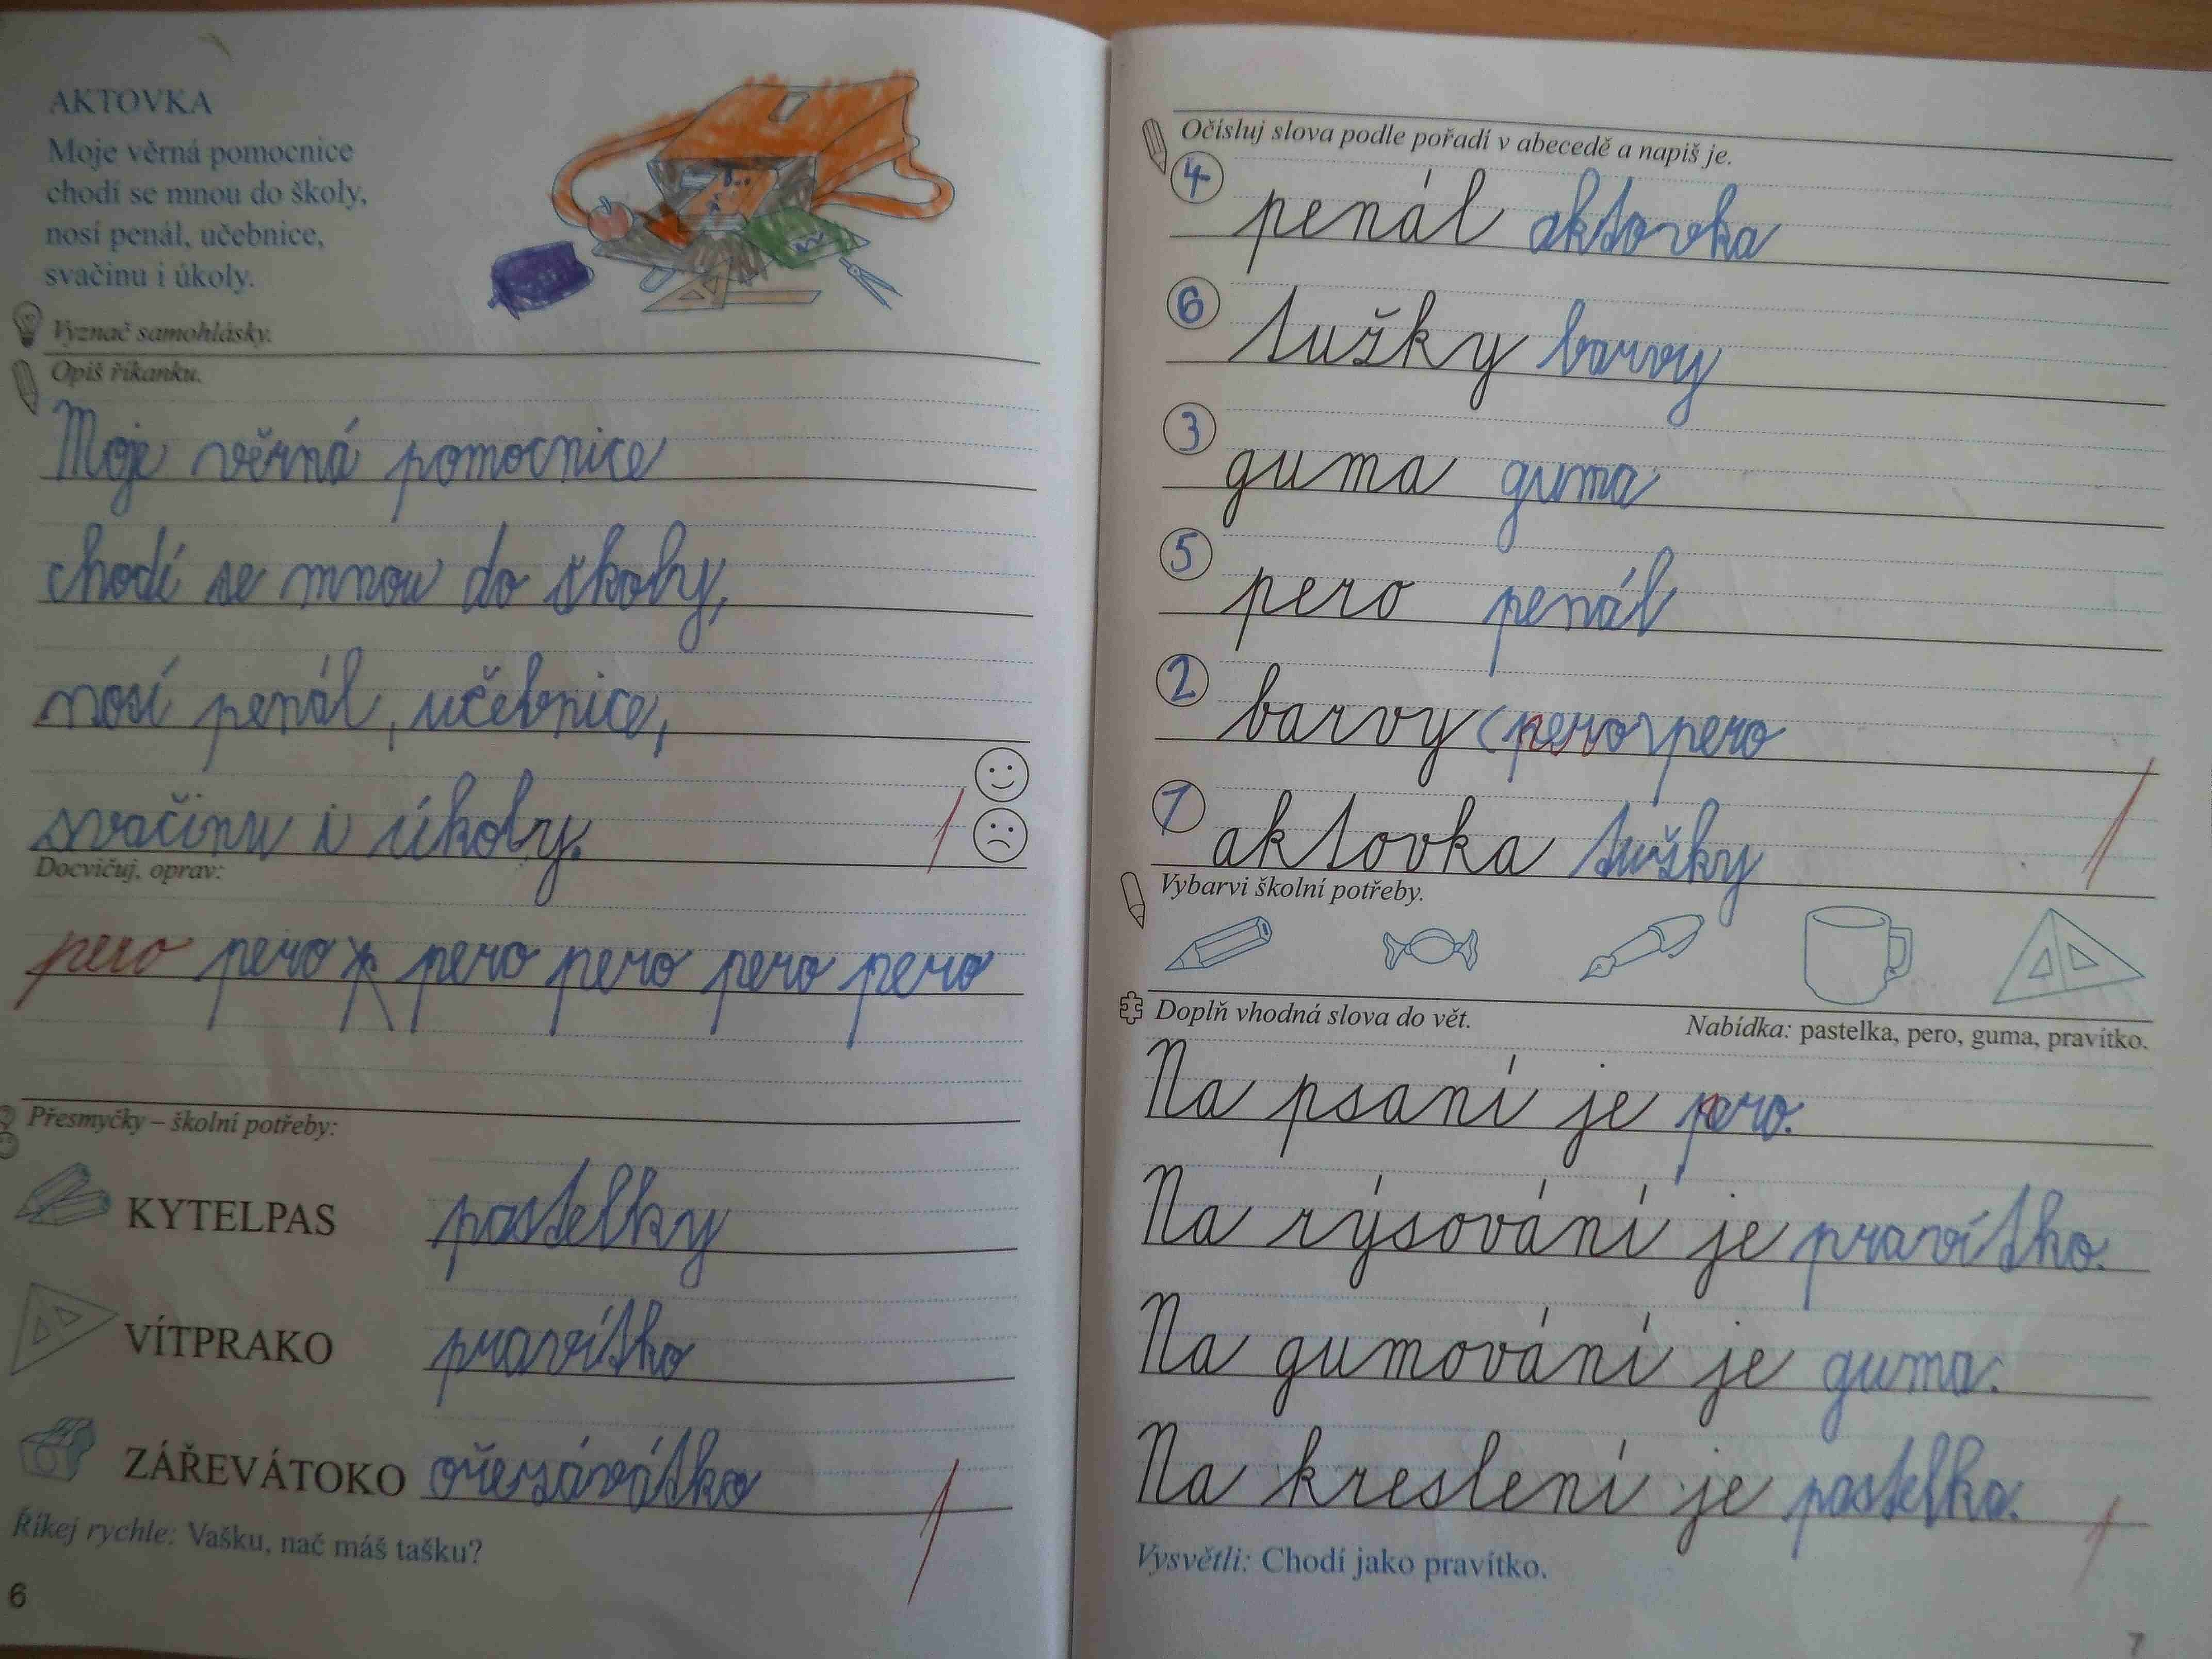 AKTOVKA
Moje věrná pomocnice
chodí se mnou do školy,
nosí penál, učebnice,
svačinu i úkoly.
Vyznač samohlásky.
Opiš říkanku.
Moje věrná pomocnice
chodí se mnou do školy,
nosí penál, učebnice,
svačinu i úkoly.
1
Docvičuj, oprav:
pero pero pero pero pero pero
Přesmyčky – školní potřeby:
KYTELPAS pastelky
VÍTPRAKO pravítko
ZÁŘEVÁTOKO ořezávátko
1
Říkej rychle: Vašku, nač máš tašku?
6
Očísluj slova podle pořadí v abecedě a napiš je.
4 penál aktovka
6 tužky barvy
3 guma guma
5 pero penál
2 barvy (pero) pero
1 aktovka tužky
1
Vybarvi školní potřeby.
Doplň vhodná slova do vět. Nabídka: pastelka, pero, guma, pravítko.
Na psaní je pero.
Na rýsování je pravítko.
Na gumování je guma.
Na kreslení je pastelka.
1
Vysvětli: Chodí jako pravítko.
7